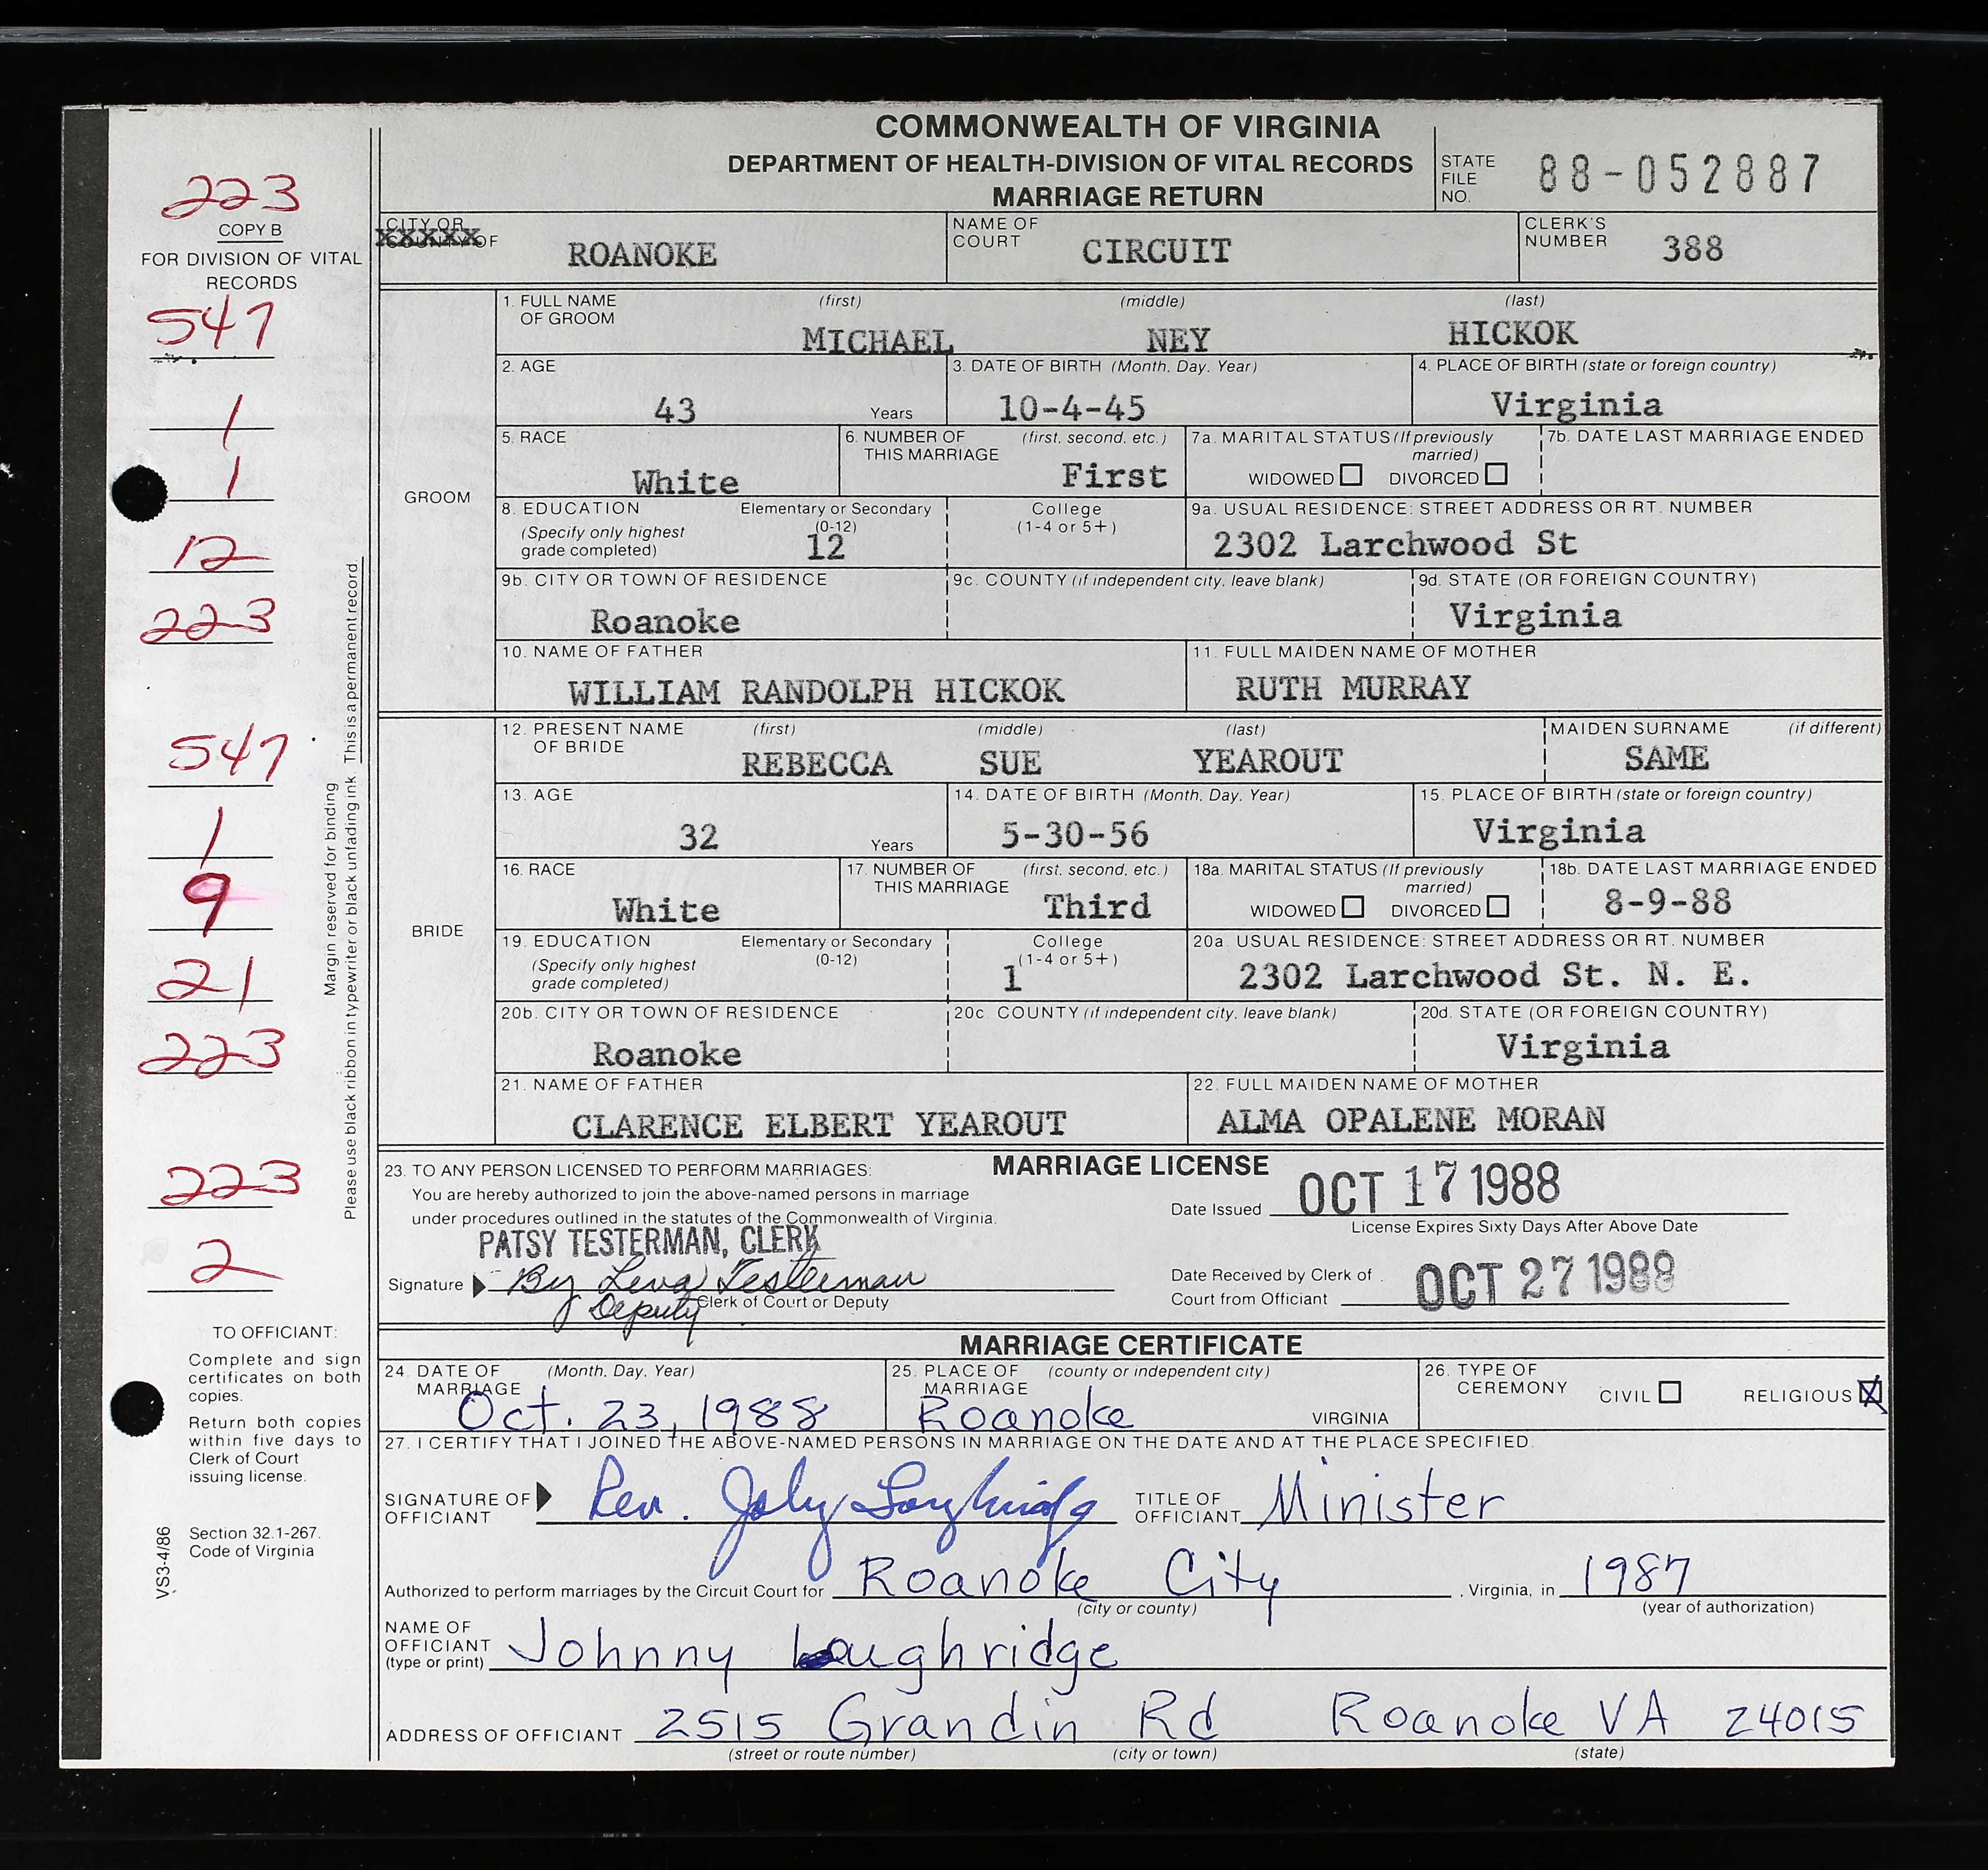 COMMONWEALTH OF VIRGINIA
DEPARTMENT OF HEALTH-DIVISION OF VITAL RECORDS
MARRIAGE RETURN
STATE FILE NO. 88-052887
223
COPY B
FOR DIVISION OF VITAL RECORDS
547
1
1
12
223
547
1
9
21
223
223
2
Margin reserved for binding
Please use black ribbon in typewriter or black unfading ink. This is a permanent record.
TO OFFICIANT:
Complete and sign
certificates on both
copies.
Return both copies
within five days to
Clerk of Court
issuing license.
Section 32.1-267.
Code of Virginia
VS3-4/86
CITY OR COUNTY OF ROANOKE
NAME OF COURT CIRCUIT
CLERK'S NUMBER 388
GROOM
1. FULL NAME OF GROOM (first) MICHAEL (middle) NEY (last) HICKOK
2. AGE 43 Years
3. DATE OF BIRTH (Month, Day, Year) 10-4-45
4. PLACE OF BIRTH (state or foreign country) Virginia
5. RACE White
6. NUMBER OF THIS MARRIAGE (first, second, etc.) First
7a. MARITAL STATUS (If previously married) WIDOWED DIVORCED
7b. DATE LAST MARRIAGE ENDED
8. EDUCATION (Specify only highest grade completed) Elementary or Secondary (0-12) 12 College (1-4 or 5+)
9a. USUAL RESIDENCE: STREET ADDRESS OR RT. NUMBER 2302 Larchwood St
9b. CITY OR TOWN OF RESIDENCE Roanoke
9c. COUNTY (if independent city, leave blank)
9d. STATE (OR FOREIGN COUNTRY) Virginia
10. NAME OF FATHER WILLIAM RANDOLPH HICKOK
11. FULL MAIDEN NAME OF MOTHER RUTH MURRAY
BRIDE
12. PRESENT NAME OF BRIDE (first) REBECCA (middle) SUE (last) YEAROUT MAIDEN SURNAME (if different) SAME
13. AGE 32 Years
14. DATE OF BIRTH (Month, Day, Year) 5-30-56
15. PLACE OF BIRTH (state or foreign country) Virginia
16. RACE White
17. NUMBER OF THIS MARRIAGE (first, second, etc.) Third
18a. MARITAL STATUS (If previously married) WIDOWED DIVORCED
18b. DATE LAST MARRIAGE ENDED 8-9-88
19. EDUCATION (Specify only highest grade completed) Elementary or Secondary (0-12) College (1-4 or 5+) 1
20a. USUAL RESIDENCE: STREET ADDRESS OR RT. NUMBER 2302 Larchwood St. N. E.
20b. CITY OR TOWN OF RESIDENCE Roanoke
20c. COUNTY (if independent city, leave blank)
20d. STATE (OR FOREIGN COUNTRY) Virginia
21. NAME OF FATHER CLARENCE ELBERT YEAROUT
22. FULL MAIDEN NAME OF MOTHER ALMA OPALENE MORAN
MARRIAGE LICENSE
23. TO ANY PERSON LICENSED TO PERFORM MARRIAGES:
You are hereby authorized to join the above-named persons in marriage
under procedures outlined in the statutes of the Commonwealth of Virginia.
PATSY TESTERMAN, CLERK
Signature By Leva Testerman
Deputy Clerk of Court or Deputy
Date Issued OCT 17 1988
License Expires Sixty Days After Above Date
Date Received by Clerk of Court from Officiant OCT 27 1988
MARRIAGE CERTIFICATE
24. DATE OF MARRIAGE (Month, Day, Year) Oct. 23, 1988
25. PLACE OF MARRIAGE (county or independent city) Roanoke VIRGINIA
26. TYPE OF CEREMONY CIVIL RELIGIOUS X
27. I CERTIFY THAT I JOINED THE ABOVE-NAMED PERSONS IN MARRIAGE ON THE DATE AND AT THE PLACE SPECIFIED.
SIGNATURE OF OFFICIANT Rev. Johnny Loughridge TITLE OF OFFICIANT Minister
Authorized to perform marriages by the Circuit Court for Roanoke City, Virginia, in 1987
(city or county) (year of authorization)
NAME OF OFFICIANT (type or print) Johnny Loughridge
ADDRESS OF OFFICIANT 2515 Grandin Rd Roanoke VA 24015
(street or route number) (city or town) (state)